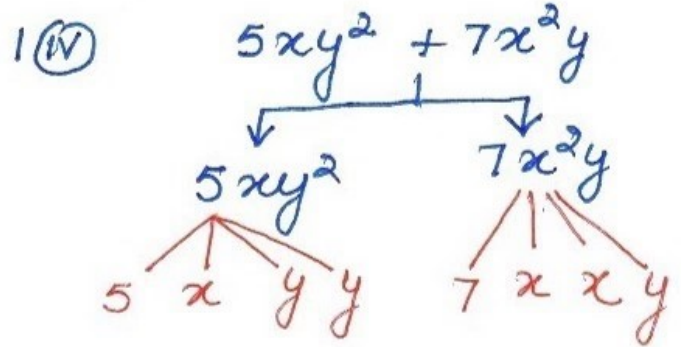 1 (iv) 5xy² + 7x²y
5xy² 7x²y
5 x y y 7 x x y